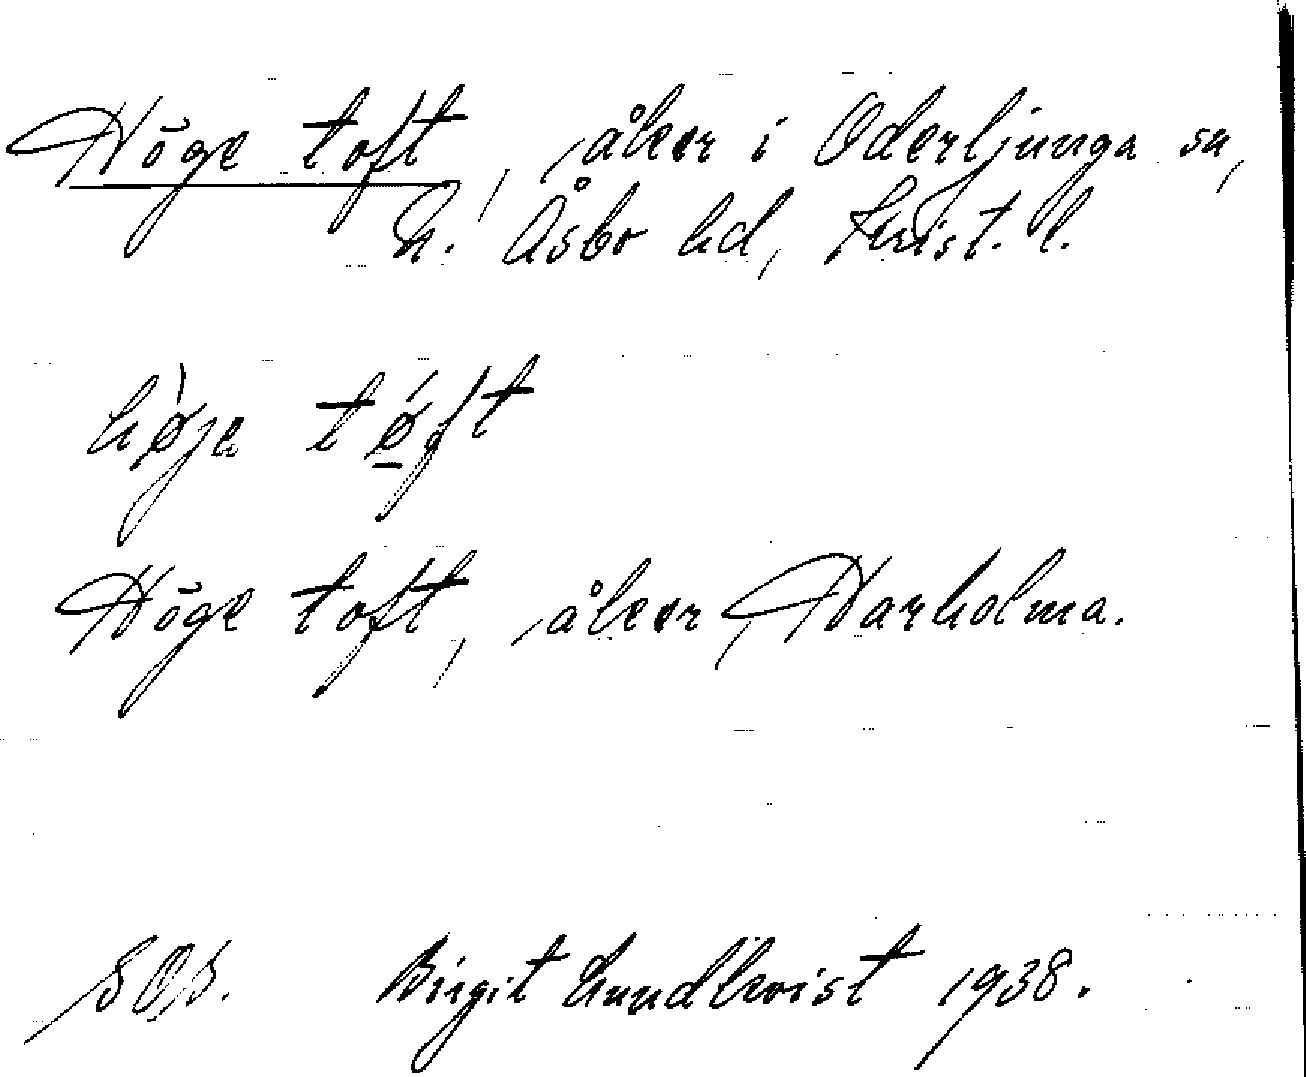 Höge toft, åker i Oderljunga sn,
N. Åsbo hd, Krist. l.
høje tøft
Höge toft, åker, Harholma.
SOS. Birgit Lundkvist 1938.